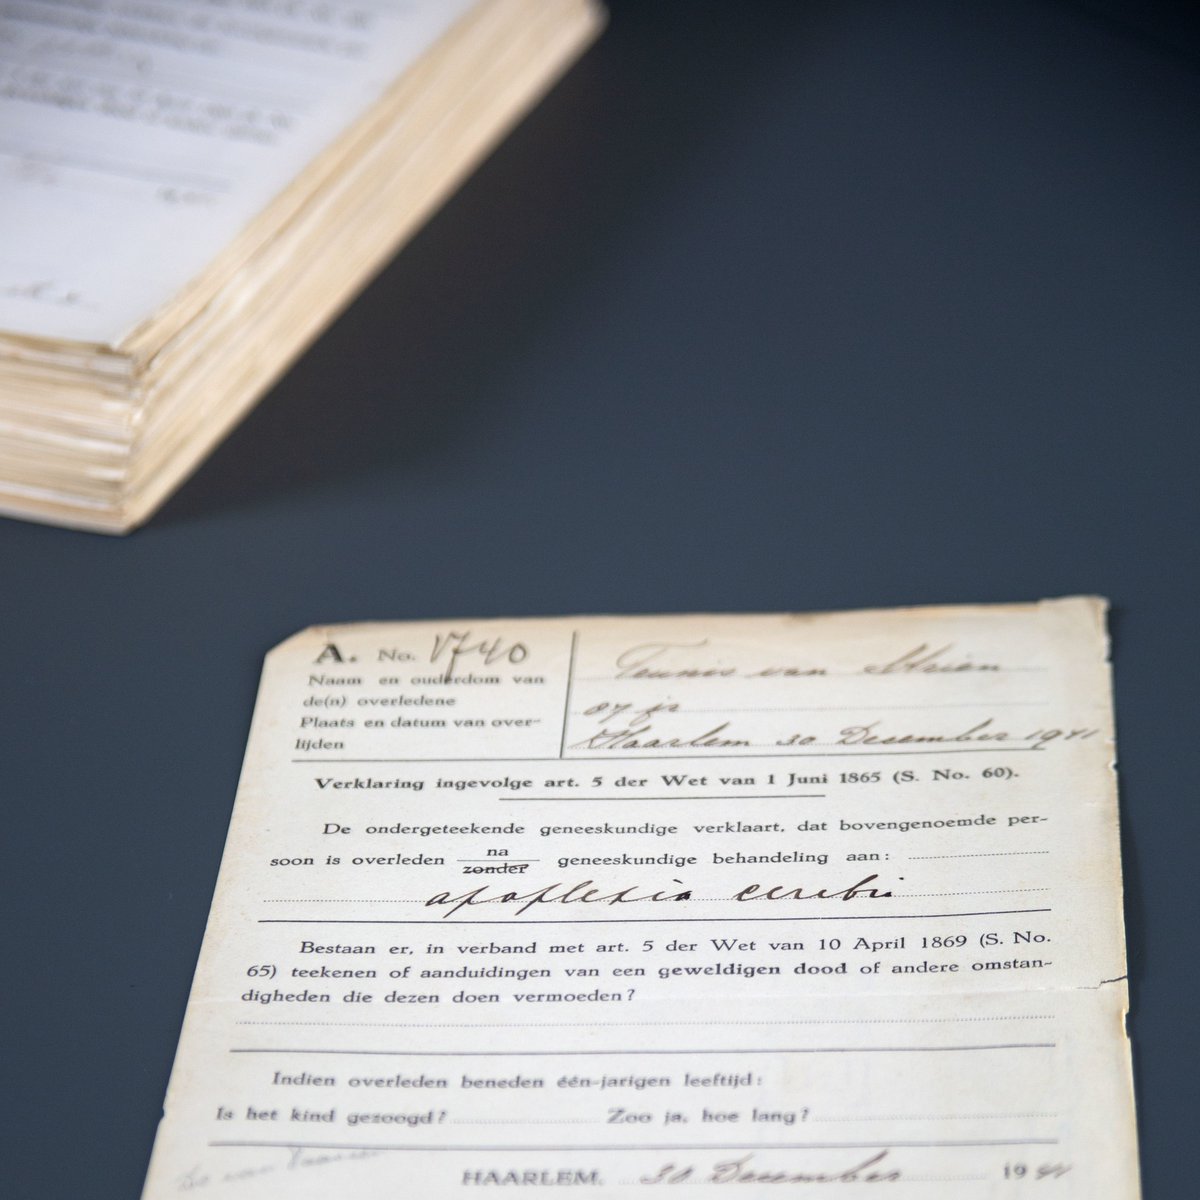 A. No. 1740
Naam en ouderdom van
de(n) overledene
Plaats en datum van over-
lijden
Teunis van
87 jr
Haarlem 30 December 1941
Verklaring ingevolge art. 5 der Wet van 1 Juni 1865 (S. No. 60).
De ondergeteekende geneeskundige verklaart, dat bovengenoemde per-
soon is overleden na
zonder geneeskundige behandeling aan:
apoplexia cerebri
Bestaan er, in verband met art. 5 der Wet van 10 April 1869 (S. No.
65) teekenen of aanduidingen van een geweldigen dood of andere omstan-
digheden die dezen doen vermoeden?
Indien overleden beneden één-jarigen leeftijd:
Is het kind gezoogd? Zoo ja, hoe lang?
HAARLEM, 30 December 1941